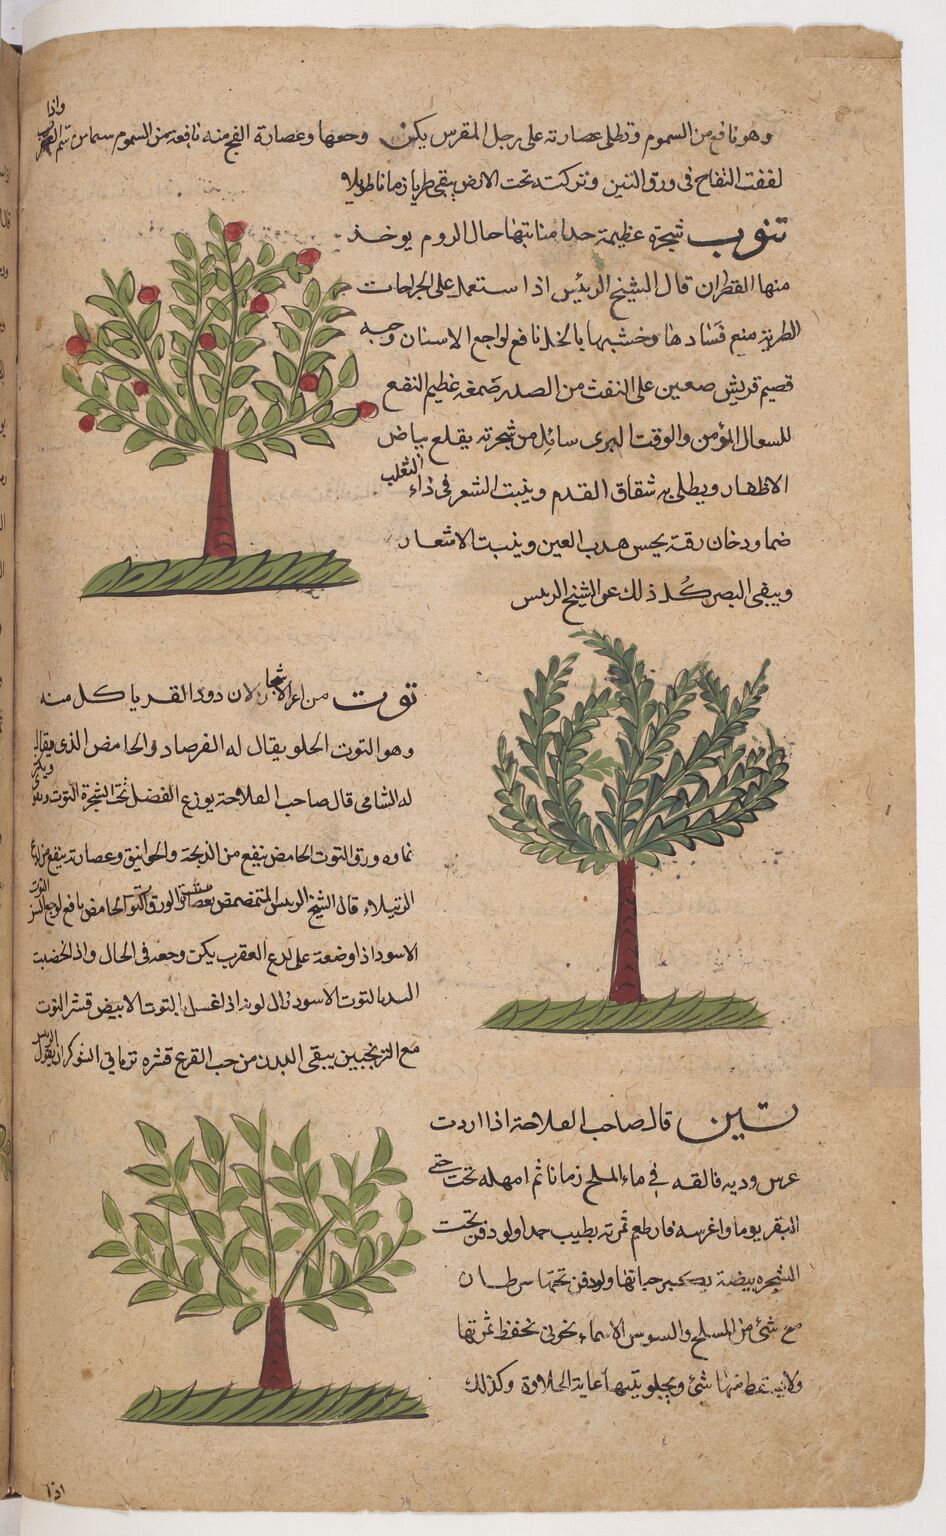 وهو نافع من السموم وتطلى عصارته على رجل المقرس يكن وجعها وعصارة الفج منه نافعة من السموم سيما من سم العقرب واذا
لففت التفاح فى ورق التين وتركته تحت الارض يبقى طريا زمانا طويلا
تنوب شجرة عظيمة جدا منابتها جبال الروم يوخذ
منها القطران قال الشيخ الرئيس اذا استعمل على الجراحات
الطرية منع فسادها وخشبها بالخل نافع لواجع الاسنان وحبه
قضيم قريش يعين على النفث من الصدر صمغه عظيم النفع
للسعال المزمن والوقت البرى سائل من شجرته يقلع بياض
الاظفار ويطلى به شقاق القدم وينبت الشعر فى داء الثعلب
ضمادا ودخان يحبس هدب العين وينبت الاشعار
ويبقى البصر كل ذلك عن الشيخ الرئيس
توت من اعز الاشجار لان دود القز ياكل منه
وهو التوت الحلو يقال له الفرصاد والحامض الذى يقال
له الشامى قال صاحب الفلاحة يوزع الفضل تحت شجرة التوت ويكثر
نماوه ورق التوت الحامض ينفع من الذبحة والخوانيق وعصارته ينفع من
الرتيلاء قال الشيخ الريس المتمضمض بعصارة الورق التوت الحامض نافع لوجع السن التوت
الاسود اذا وضعته على لدغ العقرب يكن وجعه فى الحال واذا خضبت
اليد بالتوت الاسود زال لونه اذا غسل بالتوت الابيض قشر التوت
مع الترنجبين ينقى البدن من حب القرع قشره ترياق الشوكران يقول الريس
تين قال صاحب الفلاحة اذا اردت
غرس وديه فالقه فى ماء الملح زمانا ثم امهله تحت خثى
البقر يوما واغرسه فان طعم ثمرته يطيب جدا ولو دفن تحت
الشجرة بيضة يكبر حباتها ولو دفن تحتها سرطان
مع شئ من الملح والسوس تحفظ ثمرتها
ولا يتساقط منها شئ ويحلو تينها غاية الحلاوة وكذلك
اذا